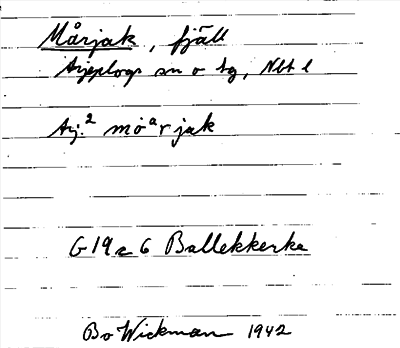 Mårjak, fjäll
Arjeplogs sn o tg, Nbt l
Arj.² mōᵃrjak
G 19 a 6 Ballekkerka
Bo Wickman 1942